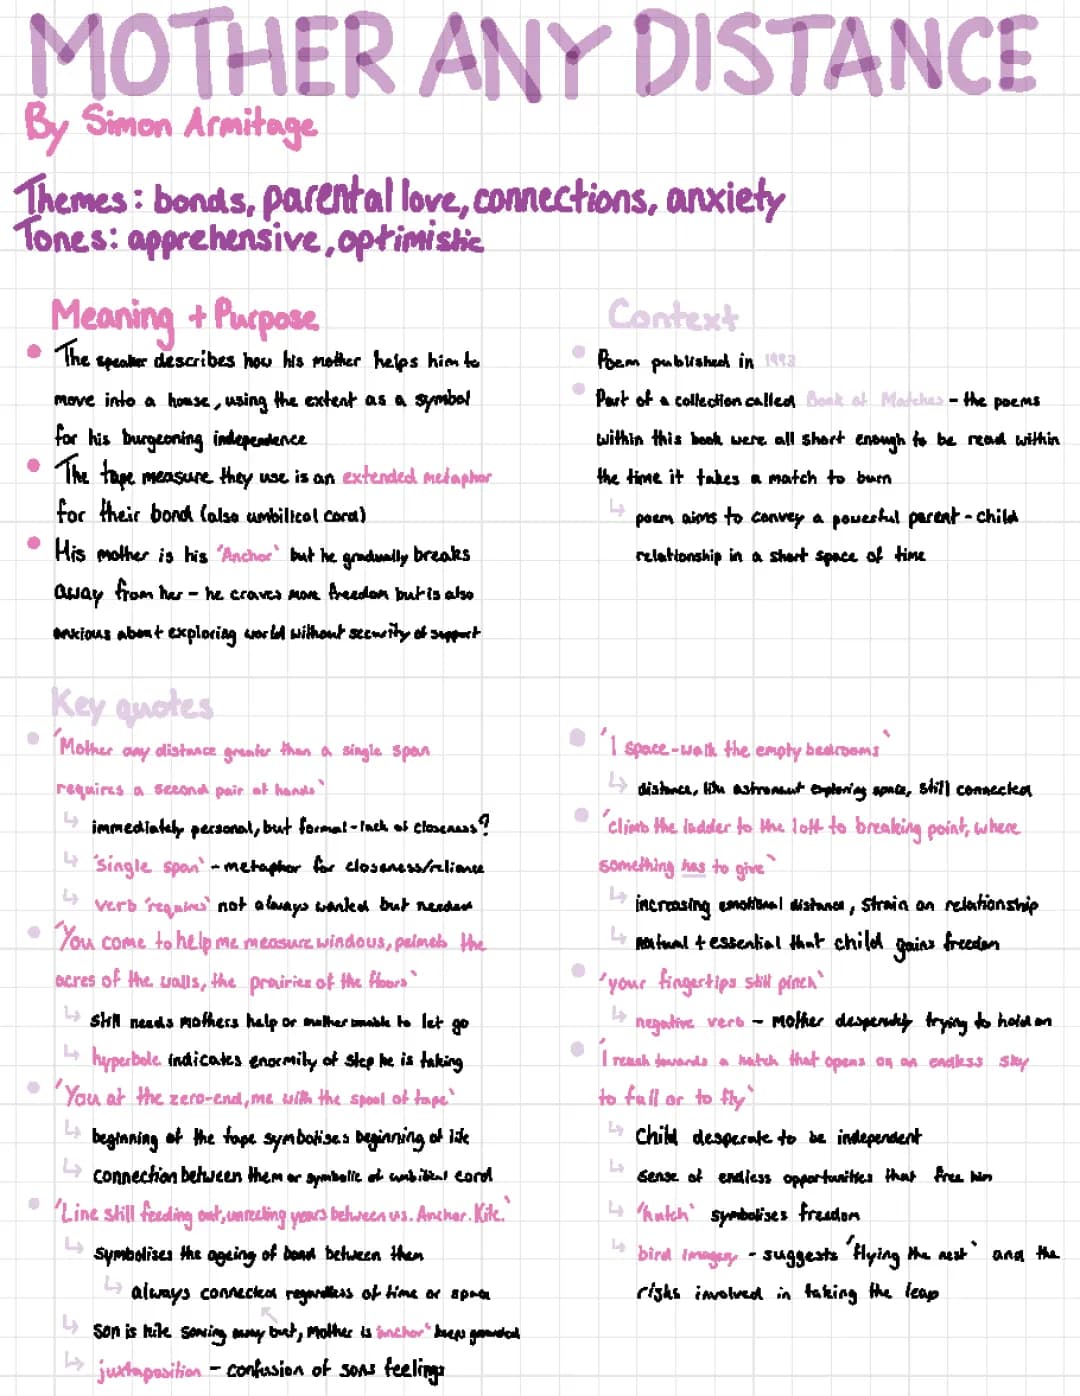 MOTHER ANY DISTANCE
By Simon Armitage
Themes: bonds, parental love, connections, anxiety
Tones: apprehensive, optimistic
Meaning + Purpose
• The speaker describes how his mother helps him to
move into a house, using the extent as a symbol
for his burgeoning independence
• The tape measure they use is an extended metaphor
for their bond (also umbilical cord)
• His mother is his 'Anchor' but he gradually breaks
away from her - he craves more freedom but is also
anxious about exploring world without security of support
Context
• Poem published in 1993
• Part of a collection called Book of Matches - the poems
within this book were all short enough to be read within
the time it takes a match to burn
↳ poem aims to convey a powerful parent-child
relationship in a short space of time
Key quotes
• 'Mother any distance greater than a single span
requires a second pair of hands'
↳ immediately personal, but formal - lack of closeness?
↳ 'single span' - metaphor for closeness/reliance
↳ verb 'requires' not always wanted but needed
• 'You come to help me measure windows, pelmets the
acres of the walls, the prairies of the floors'
↳ still needs mothers help or mother unable to let go
↳ hyperbole indicates enormity of step he is taking
• 'You at the zero-end, me with the spool of tape'
↳ beginning of the tape symbolises beginning of life
↳ connection between them or symbolic of umbilical cord
• 'Line still feeding out, unreeling years between us. Anchor. Kite.'
↳ symbolises the ageing of bond between them
↳ always connected regardless of time or space
↳ son is kite soaring away but, mother is 'anchor' keeps grounded
↳ juxtaposition - confusion of sons feelings
• 'I space-walk the empty bedrooms'
↳ distance, like astronaut exploring space, still connected
• 'climb the ladder to the loft to breaking point, where
something has to give'
↳ increasing emotional distance, strain on relationship
↳ natural + essential that child gains freedom
• 'your fingertips still pinch'
↳ negative verb - mother desperately trying to hold on
• 'I reach towards a hatch that opens on an endless sky
to fall or to fly'
↳ Child desperate to be independent
↳ sense of endless opportunities that free him
↳ 'hatch' symbolises freedom
↳ bird imagery - suggests 'flying the nest' and the
risks involved in taking the leap